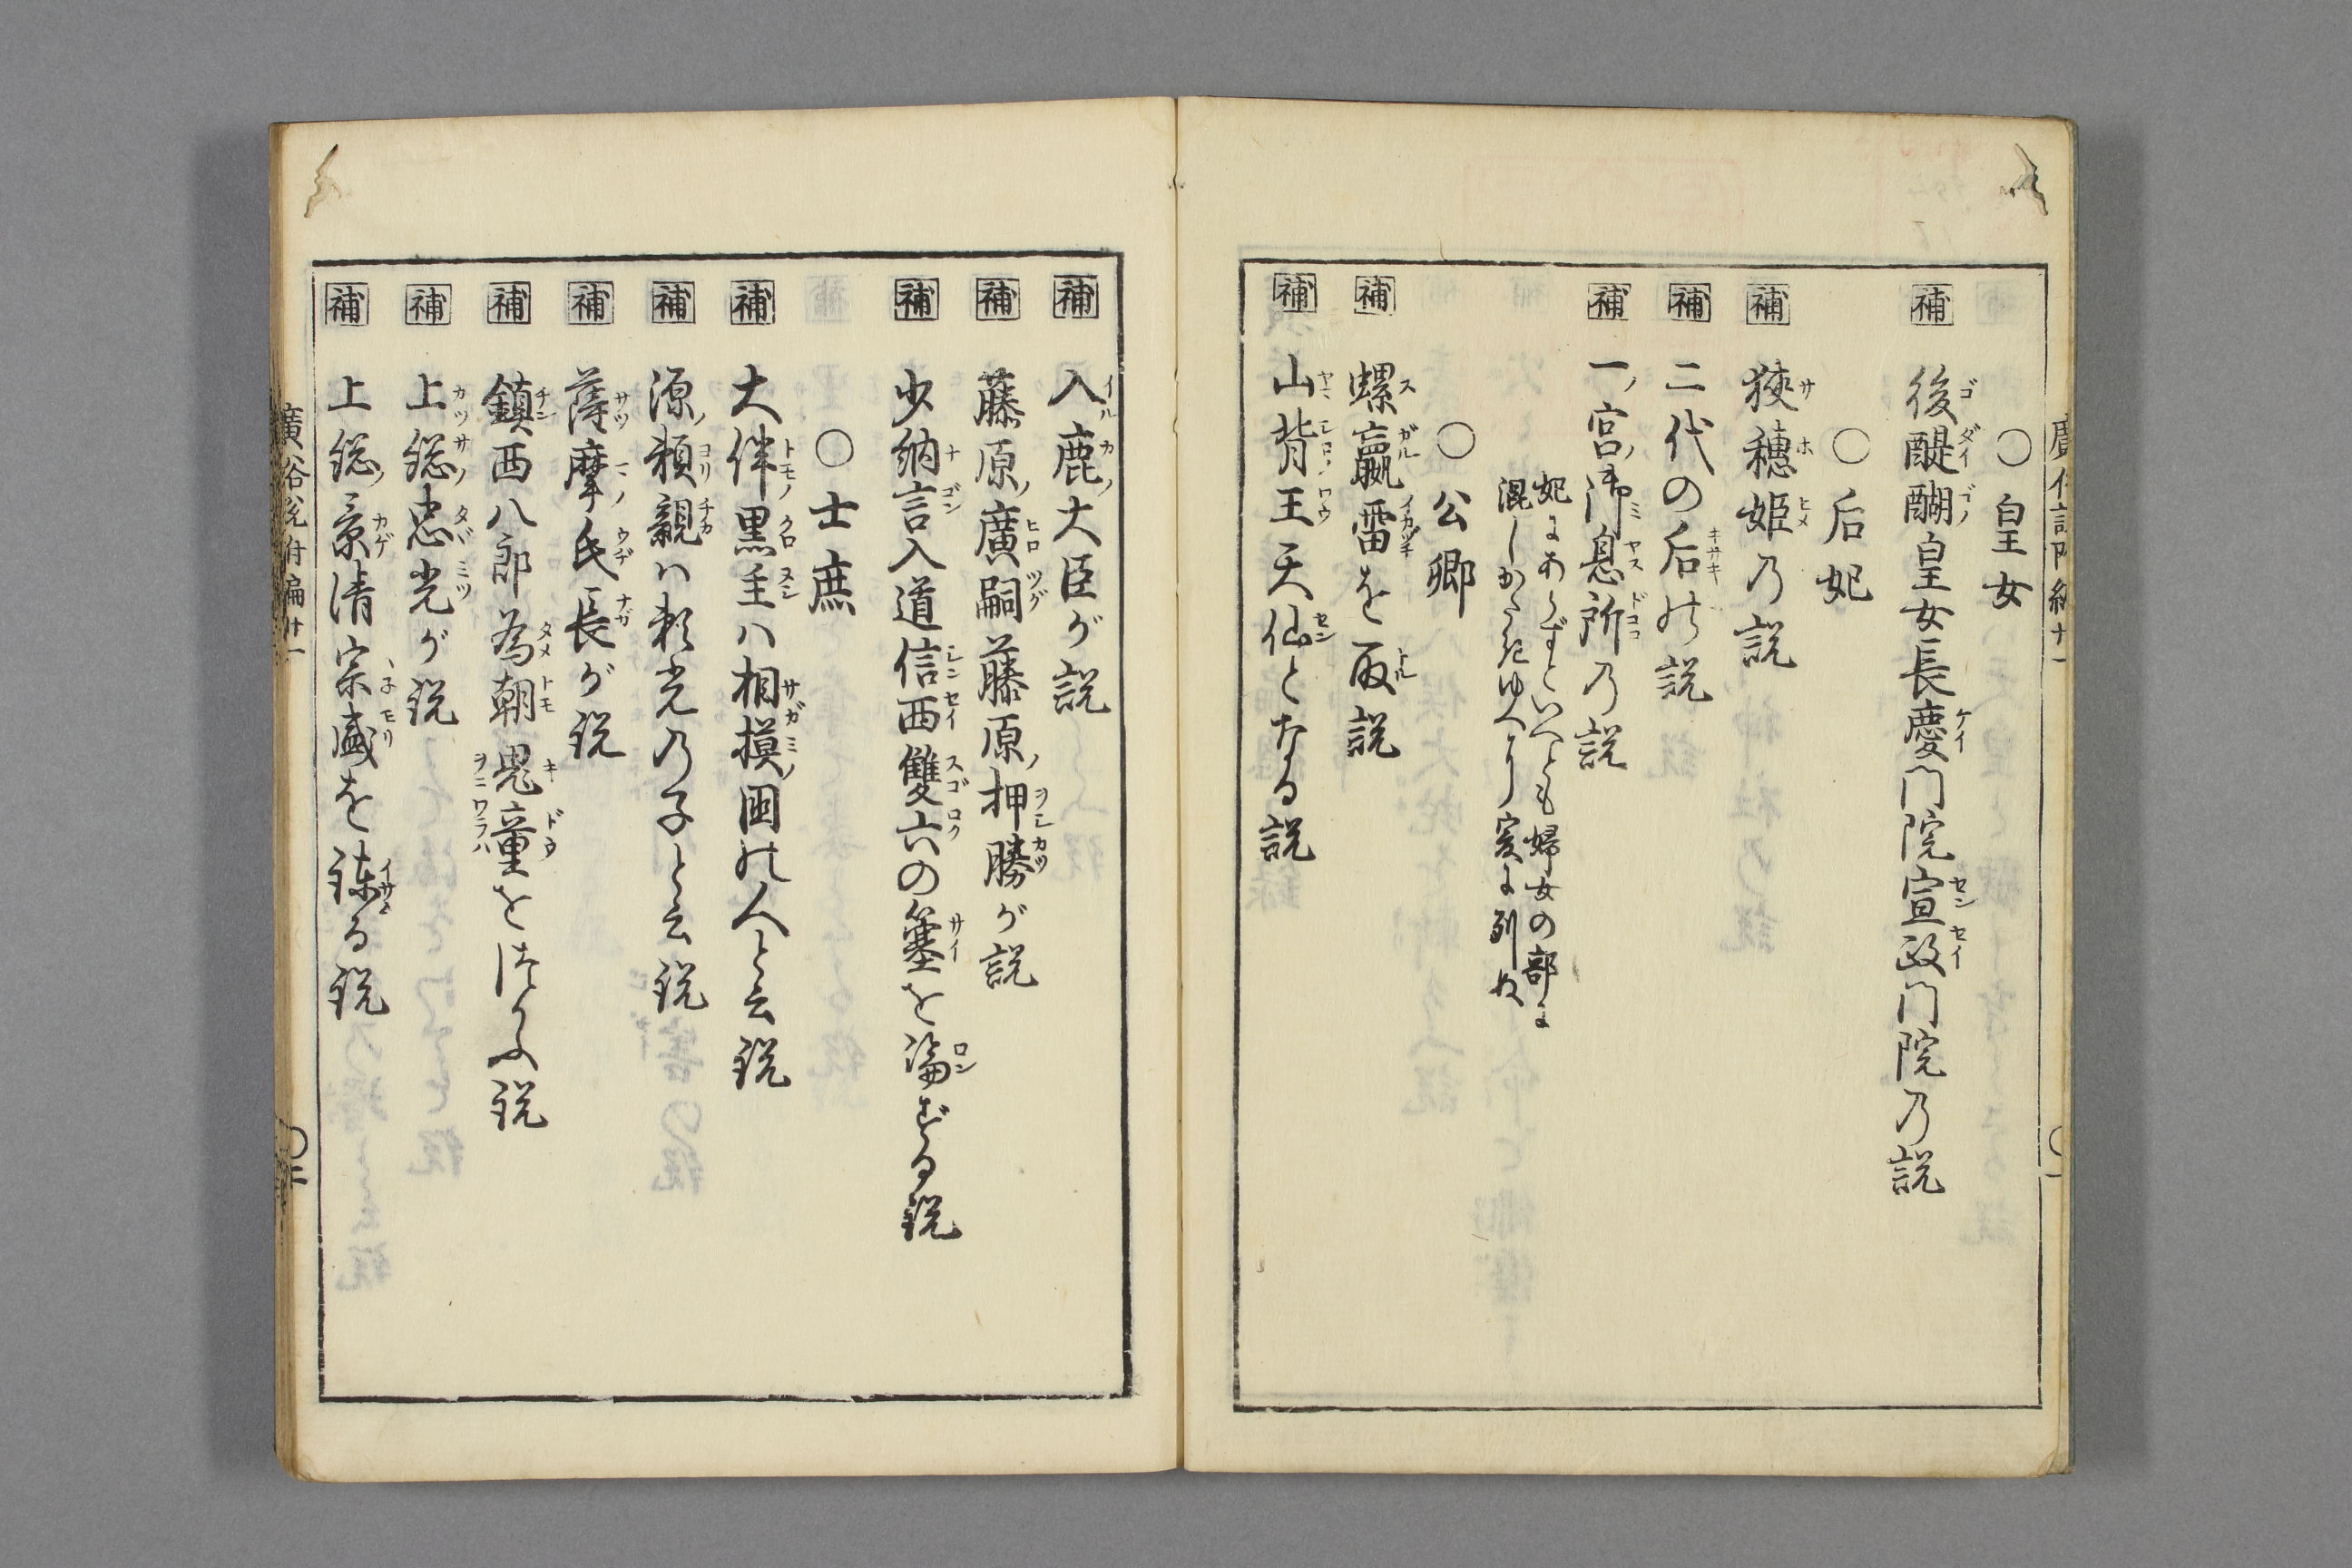 ○皇女
補 後醍醐皇女長慶門院宣政門院乃説
○后妃
補 狹穗姫乃説
補 二代の后の説
補 一ノ宮ノ御息所乃説
妃にあらずといへども婦女の部に
混しがたきゆへに爰に列ぬ
○公卿
補 螺蠃雷を取説
補 山背王天仙となる説
補 入鹿ノ大臣が説
補 藤原ノ廣嗣藤原ノ押勝が説
補 少納言入道信西雙六の簺を論ずる説
○士庶
補 大伴黒主ハ相摸ノ国の人と云説
補 源ノ頼親ハ頼光乃子と云説
補 薩摩ノ氏長が説
補 鎮西八郎為朝鬼童をつかふ説
補 上総忠光が説
補 上総ノ景清宗盛を諫る説